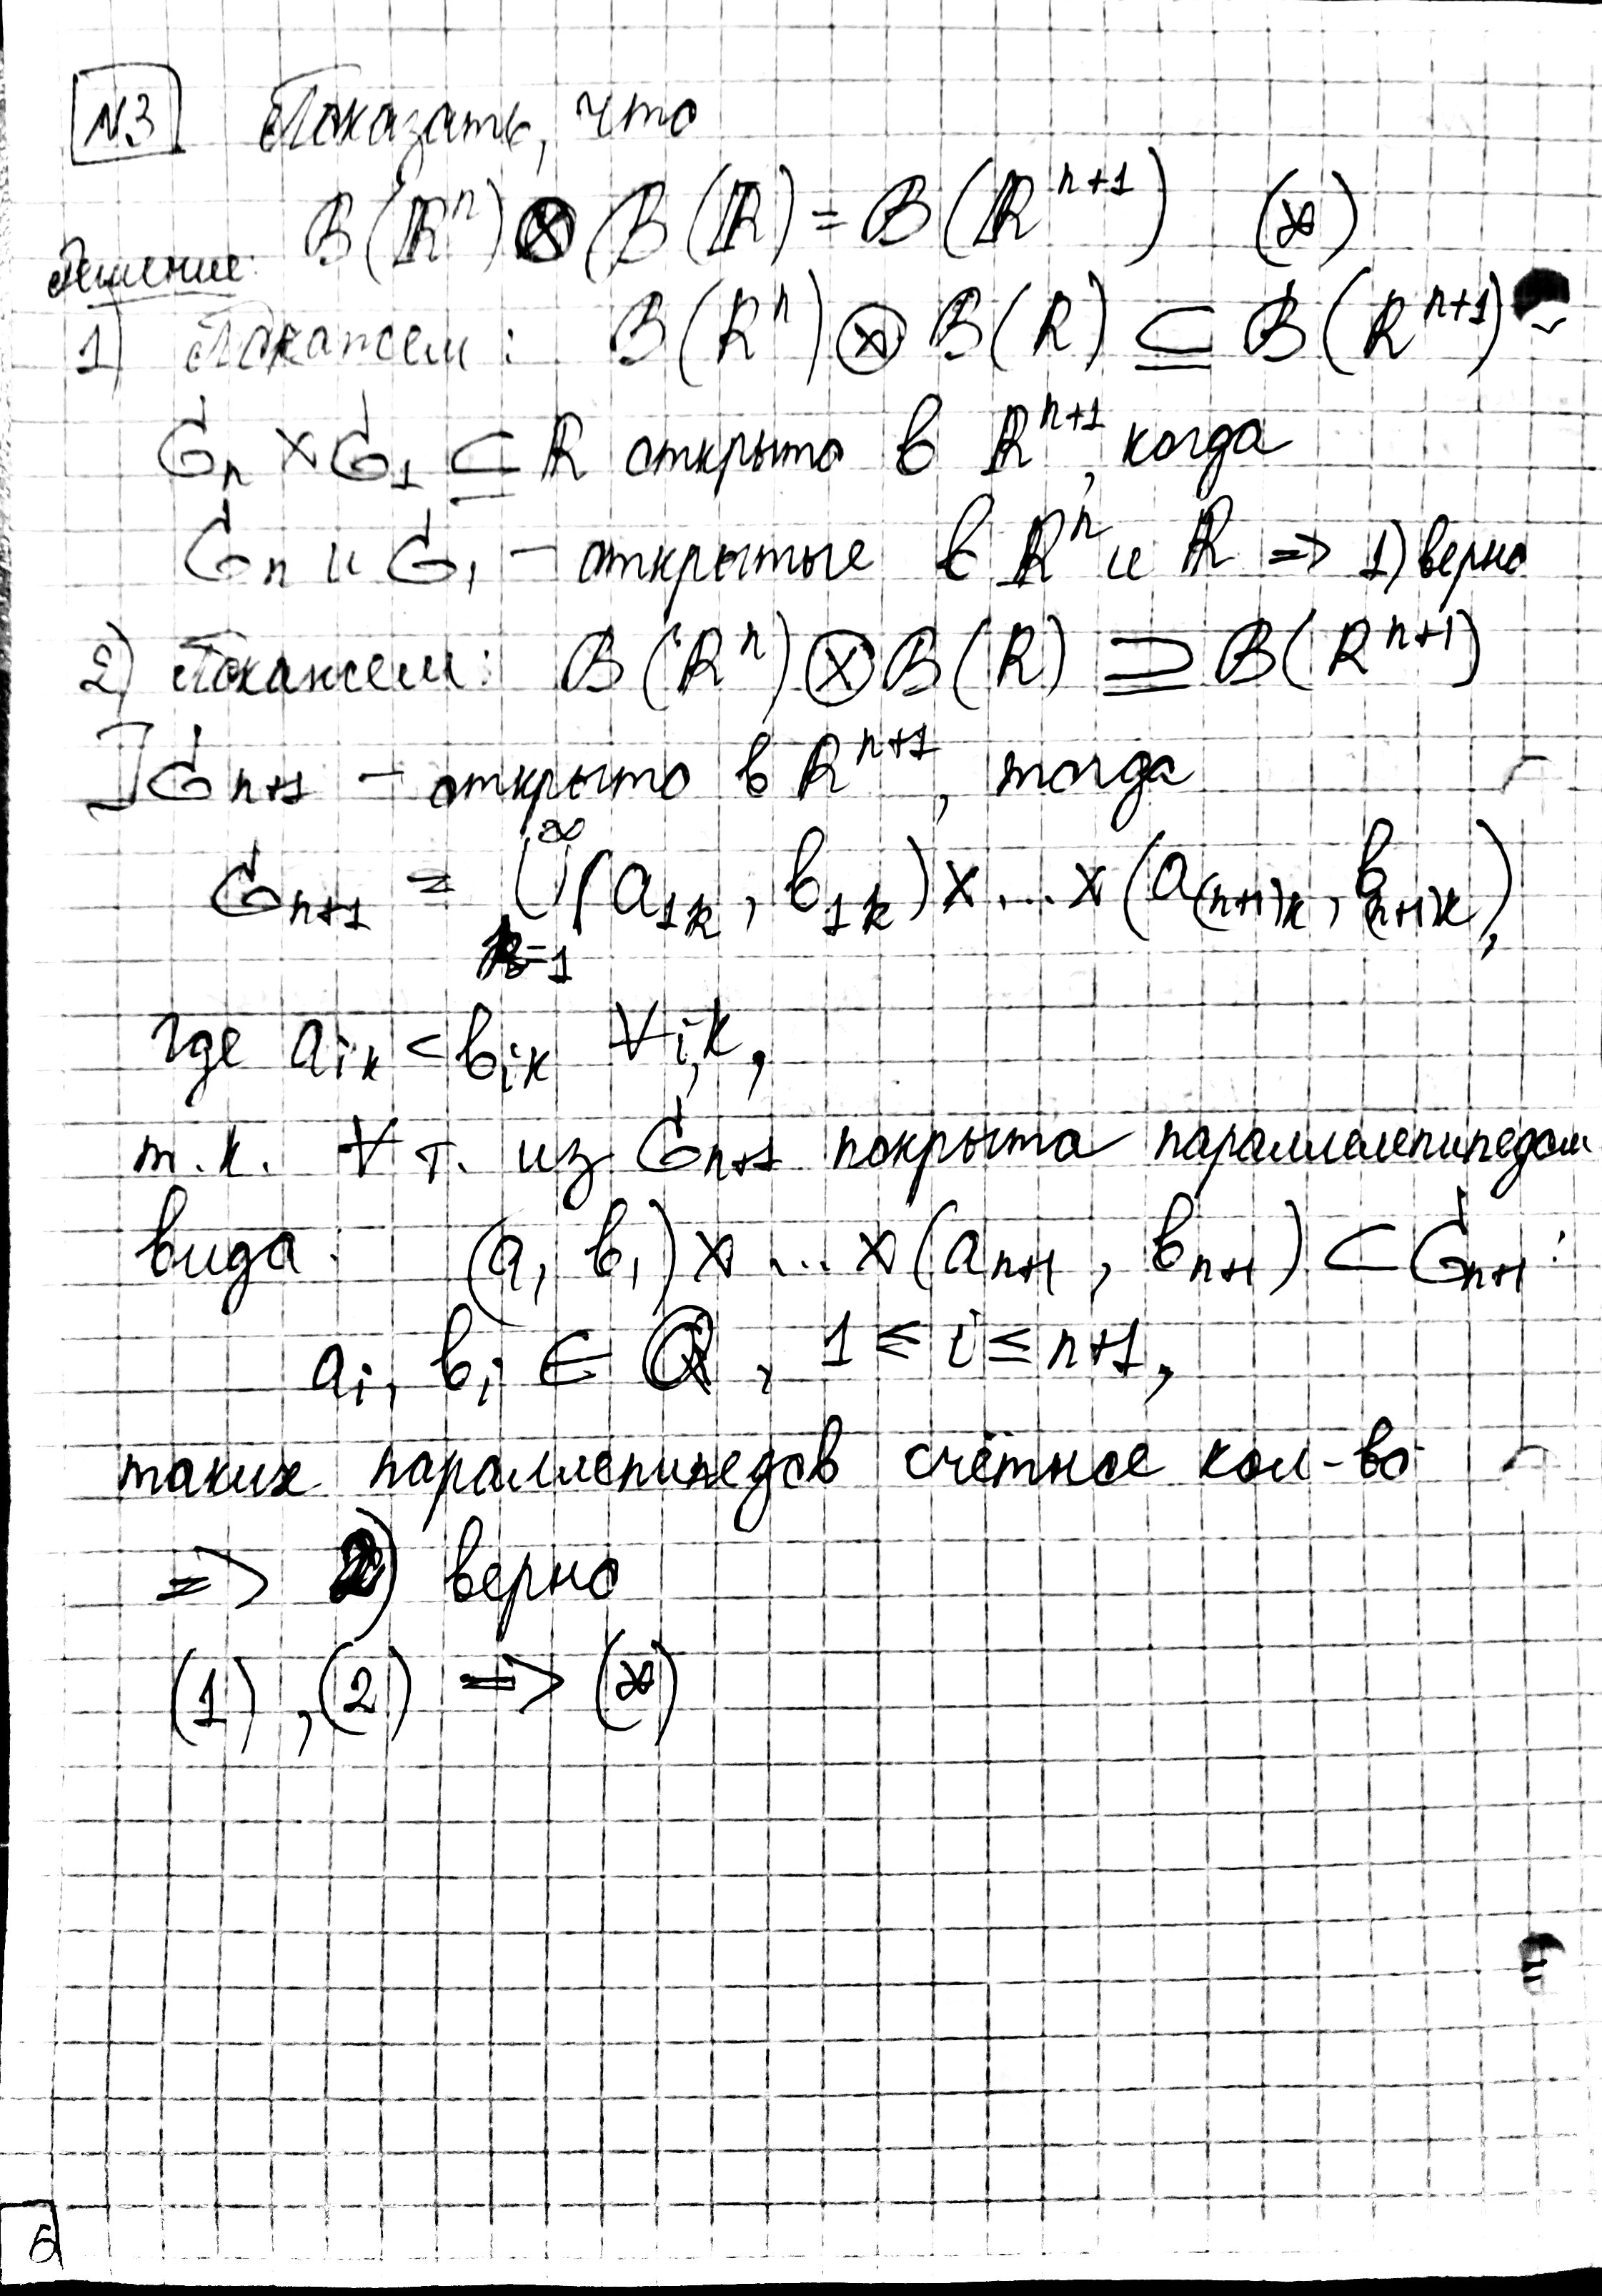 N3 Показать, что
B(ℝⁿ) ⊗ B(ℝ) = B(ℝⁿ⁺¹) (*)
Решение:
1) Покажем: B(ℝⁿ) ⊗ B(ℝ) ⊆ B(ℝⁿ⁺¹)
Gₙ × G₁ ⊆ ℝ открыто в ℝⁿ⁺¹, когда
Gₙ и G₁ – открытые в ℝⁿ и ℝ => 1) верно
2) Покажем: B(ℝⁿ) ⊗ B(ℝ) ⊇ B(ℝⁿ⁺¹)
] Gₙ₊₁ – открыто в ℝⁿ⁺¹, тогда
Gₙ₊₁ = ⋃_{k=1}^{∞} (a_{1k}, b_{1k}) × ... × (a_{(n+1)k}, b_{(n+1)k}),
где a_{ik} < b_{ik} ∀ i,k,
т.к. ∀ т. из Gₙ₊₁ покрыта параллелепипедом
вида: (a₁, b₁) × ... × (aₙ₊₁, bₙ₊₁) ⊂ Gₙ₊₁:
aᵢ, bᵢ ∈ ℚ, 1 ≤ i ≤ n+1,
таких параллепипедов счётное кол-во
=> 2) верно
(1), (2) => (*)
6